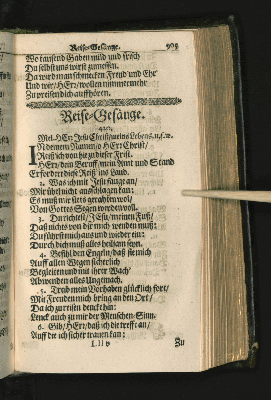 Reise-Gesänge. 905
Wo tausend Gaben mild und frisch
Du selbst uns wirst zumessen.
Da wird man schmecken Freud und Ehr
Und wir/ HErr/ wollen nimmermehr
Zu preisen dich auffhören.
Reise-Gesänge.
Mel. HErr Jesu Christ meins Lebens. u.s.w.
IN deinem Namen/ o HErr Christ/
Reiß ich von hie zu dieser Frist.
HErr/ dein Beruff/ mein Amt und Stand
Erfordert diese Reiß ins Land.
2. Was ich mit Jesu fange an/
Mir übel nicht anschlagen kan:
Es muß mir stets gerahten wol/
Von Gottes Segen werden voll.
3. Du richtest/ JEsu/ meinen Fuß/
Daß nichts von dir mich wenden muß:
Du führest mich aus und wieder ein:
Durch dich muß alles heilsam seyn.
4. Befihl den Engeln/ daß sie mich
Auff allen Wegen sicherlich
Begleiten und mit ihrer Wach/
Abwenden alles Ungemach.
5. Treib mein Vorhaben glücklich fort/
Mit Freuden mich bring an den Ort/
Da ich zu reisen denck hin:
Lenck auch zu mir der Menschen Sinn.
6. Gib/ HErr/ daß ich die treff an/
Auff die ich sicher trauen kan:
Zu